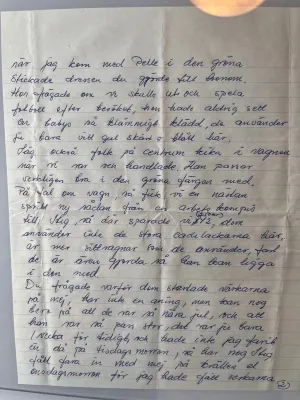 när jag kom med Pelle i den gröna
stickade dressen du gjorde till honom.
Hon frågade om vi skulle ut och spela
fotboll efter besöket, hon hade aldrig sett
en babys så klämmigt klädd, de använder
ju bara vitt gul skärt o blått här.
Såg också folk på centrum kika i vagnen
när vi var och handlade. Han passar
verkligen bra i den gröna färgen med.
På tal om vagn så fick vi en nästan
från en arbetskompis
till Stig, så där sparade vi, den
använder inte de stora här,
är mer sittvagnar som de använder, fast
de är även gjorda så han kan ligga
i den med.
Du frågade varför dom startade värkarna
på mej, har ink en aning, men kan nog
bero på att de var så nära jul, och att
han var så pass stor, det var ju bara
1 vecka för tidigt, och hade inte jag farit
in då på tisdagsmorron, så har nog Stig
fått fara in med mej på kvällen el
onsdagsmorron för jag hade fått värkarna
2